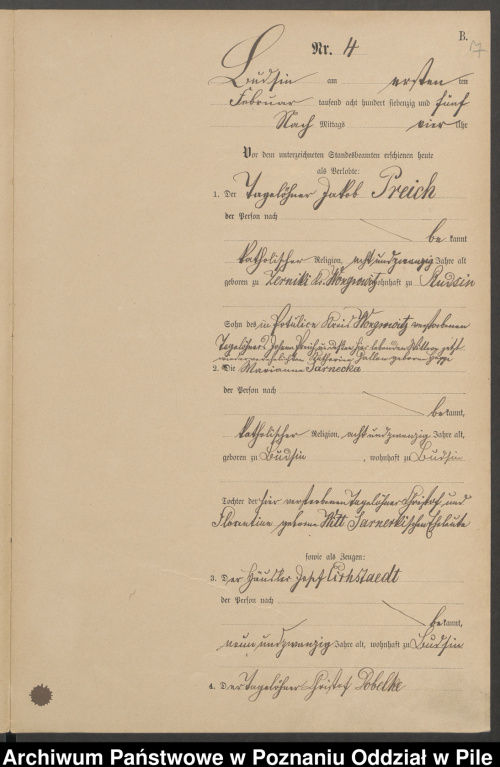 B.
17
Nr. 4
Budsin am ersten ten
Februar tausend acht hundert siebenzig und fünf
Nach Mittags vier Uhr
Vor dem unterzeichneten Standesbeamten erschienen heute
als Verlobte:
1. Der Tagelöhner Jakob Preich
der Person nach
be kannt
katholischer Religion, acht und zwanzig Jahre alt
geboren zu Zerniki Kr. Wongrowitz wohnhaft zu Budsin
Sohn des in Potulice Kreis Wongrowitz verstorbenen
Tagelöhners Johann Preich und dessen hier lebenden Wittwe jetzt
wieder verehelichten Katharina geborene
2. Die Marianna Jarnecka
der Person nach
bekannt,
katholischer Religion, acht und zwanzig Jahre alt,
geboren zu Budsin, wohnhaft zu Budsin
Tochter der hier verstorbenen Tagelöhner Christof und
Florentine geborene Witt Jarneckischen Eheleute
sowie als Zeugen:
3. Der Häusler Josef Kirhstaedt
der Person nach
bekannt,
neun und zwanzig Jahre alt, wohnhaft zu Budsin
4. Der Tagelöhner Christof Dobelke
Archiwum Państwowe w Poznaniu Oddział w Pile